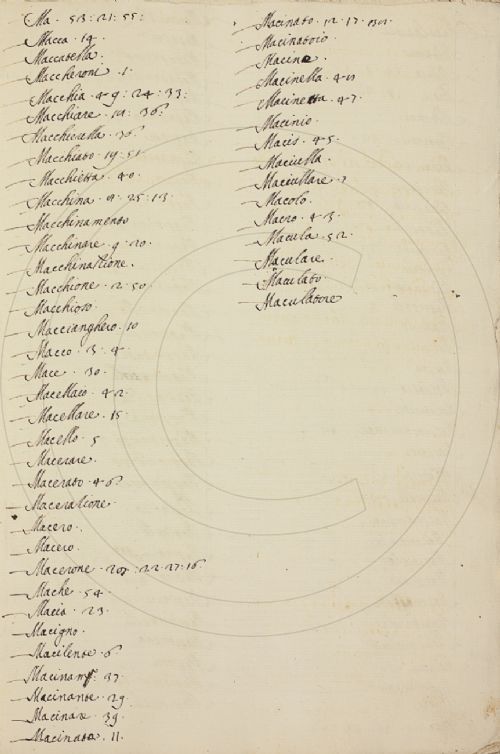 Ma · 53 : 21 : 55 :
Macca · 19 ·
Maccatella ·
Maccheroni · 1 ·
Macchia · 49 : 24 : 33 :
Macchiare · 36 ·
Macchierella · 36 ·
Macchiato · 19 : 51
Macchietta · 40 ·
Macchina · 25 : 13
Macchinamento
Macchinare · 9 · 20 ·
Macchinatione ·
Macchione · 2 · 50
Macchioso ·
Maccianghero · 10
Macco · 3 · 4 ·
Mace · 30 ·
Macellaio · 42 ·
Macellare · 15
Macello · 5
Macerare ·
Macerato · 46
Maceratione
Macero ·
Macero ·
Macerone · : 22 · 27 : 16 ·
Mache · 54
Macia · 23 ·
Macigno ·
Macilente · 6 ·
37
Macinante · 29
39 ·
Macinata · 11 ·
Macinato · 12 · 17 ·
Macinatoio
Macine
Macinella ·
Macinetta · 47 ·
Macinio ·
Macis · 45 ·
Maciulla ·
Maciullare
Macolo ·
Macro · 43 ·
Macula · 52 ·
Maculare ·
Maculato ·
Maculatore